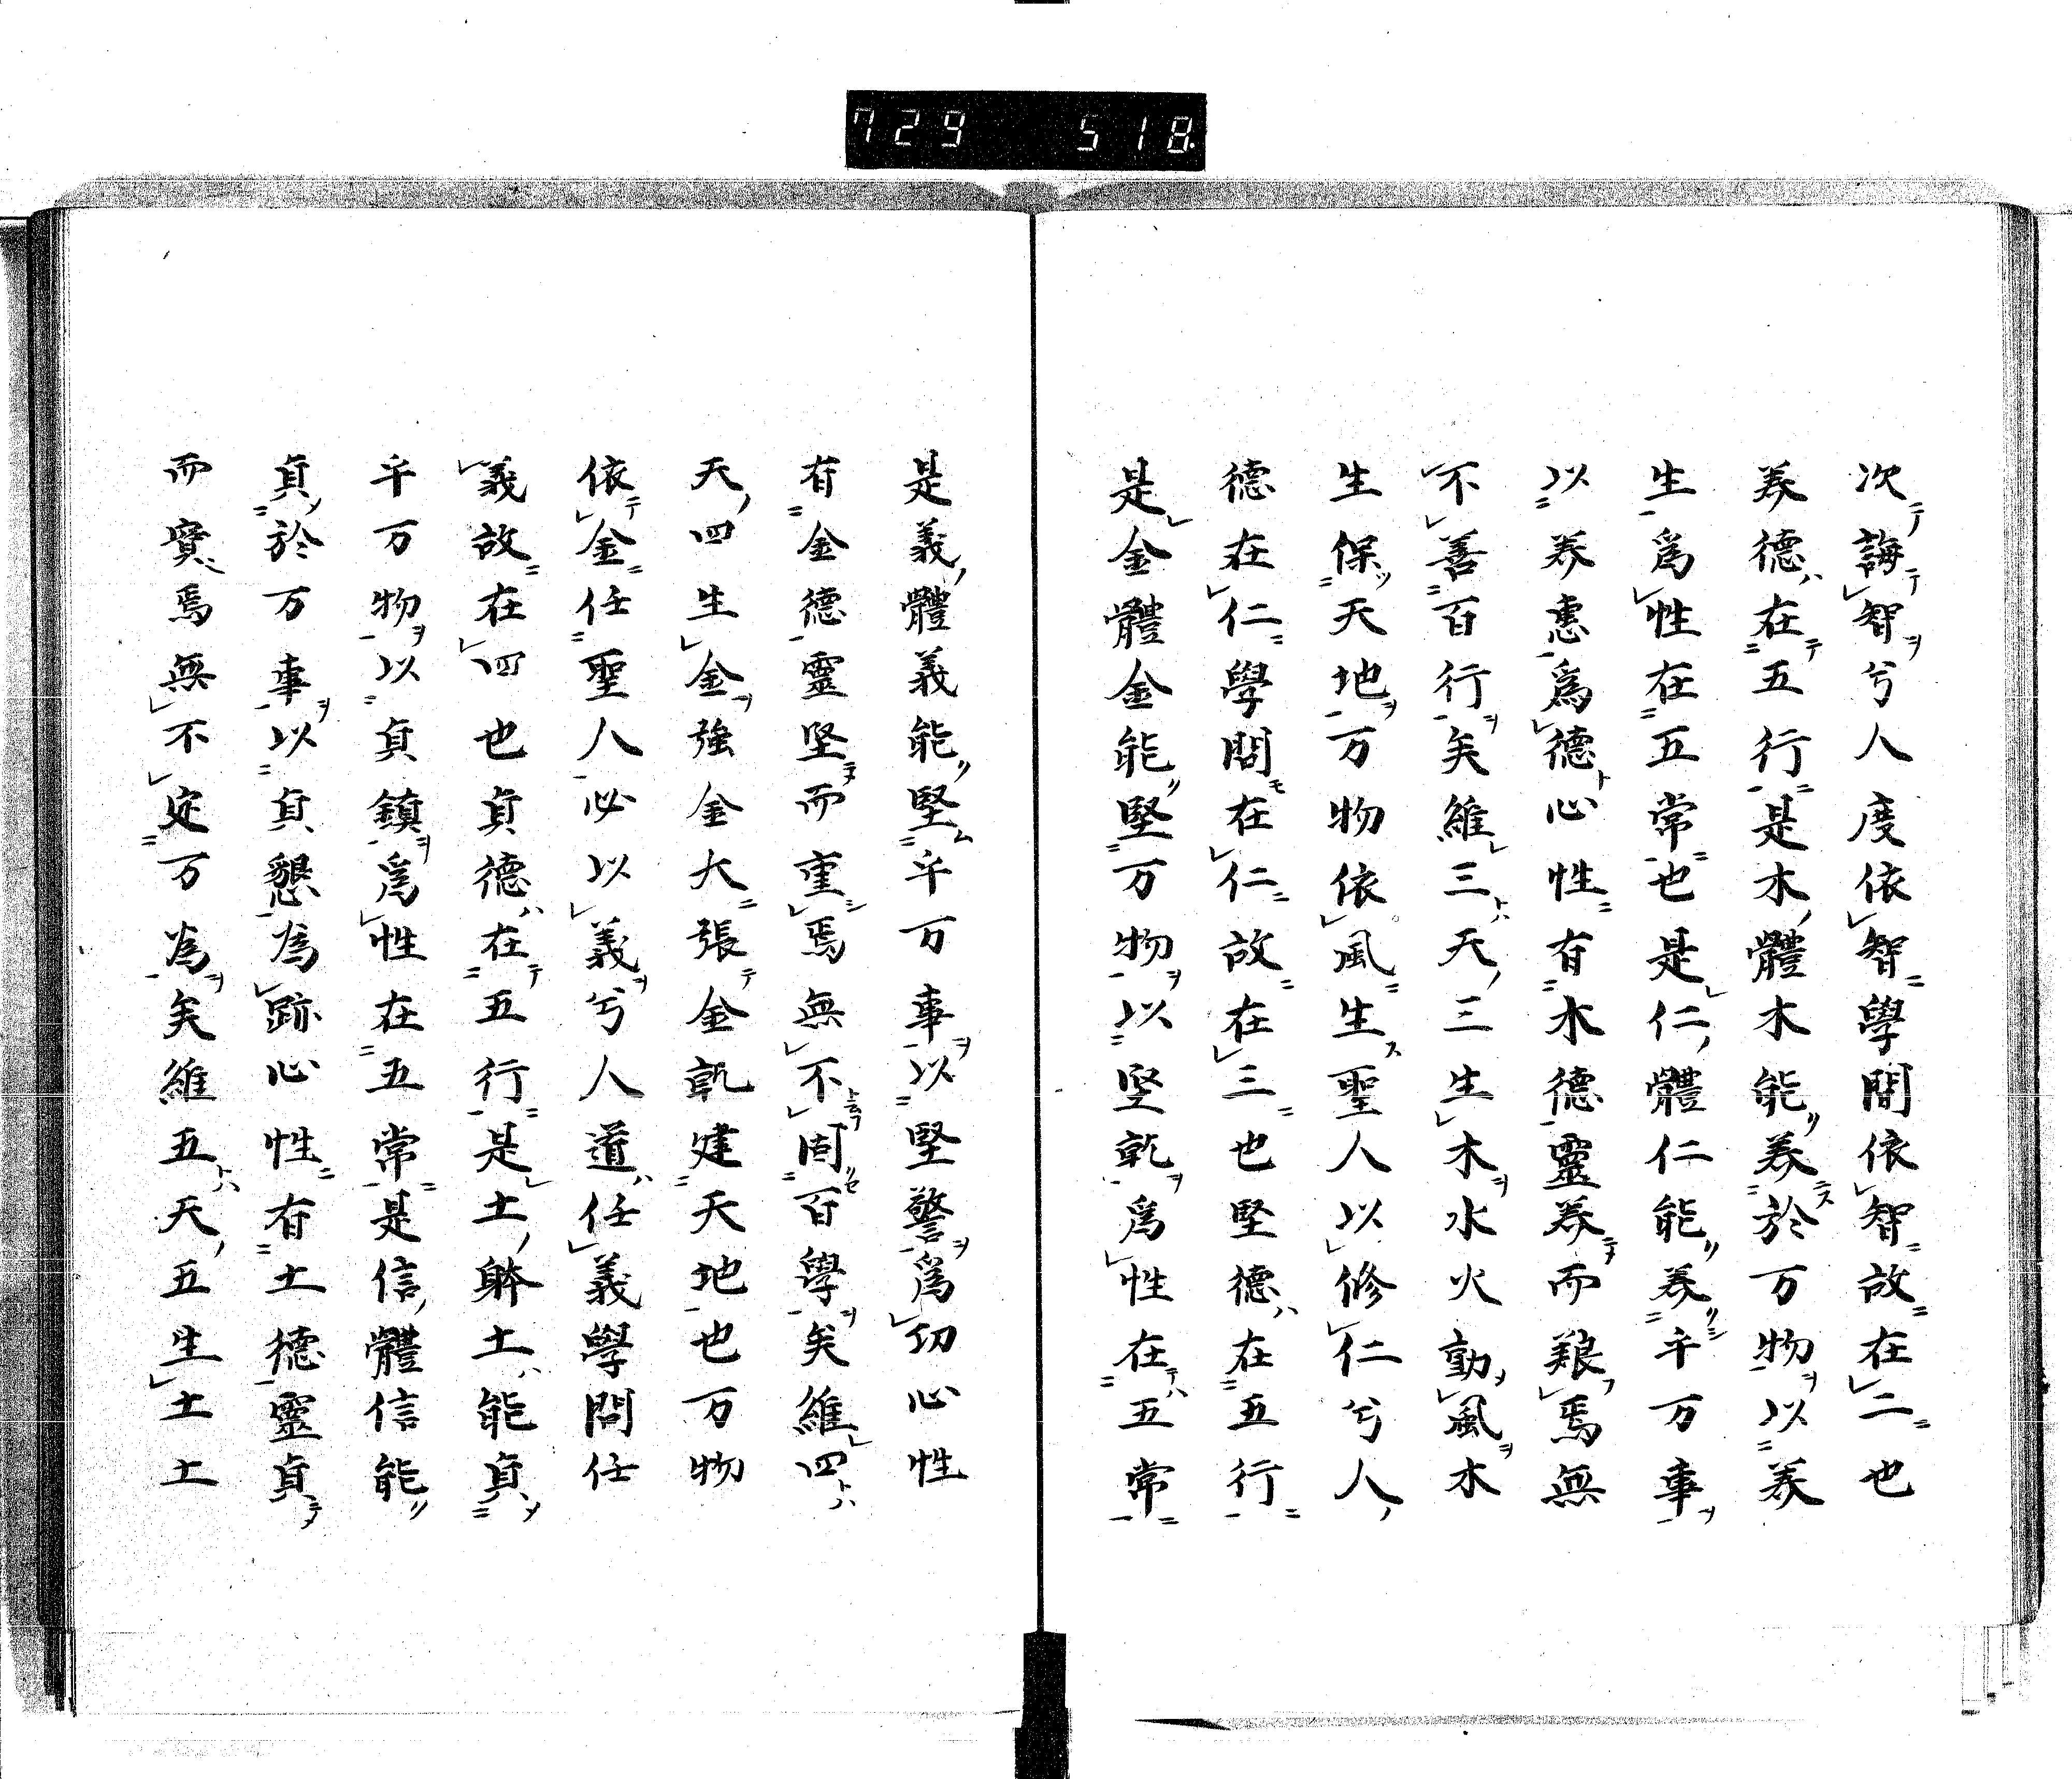 729 518
次誨智兮人度依智學問依智故在二也
養德在五行是木體木能養於万物以養
生爲性在五常也是仁體仁能養千万事
以養惠爲德心性有木德靈養而艱焉無
不善百行矣維三天三生木水火動風木
生保天地万物依風生聖人以修仁兮人
德在仁學問在仁故在三也堅德在五行
是金體金能堅万物以堅乾爲性在五常
是義體義能堅千万事以堅警爲功心性
有金德靈堅而重焉無不固百學矣維四
天四生金強金大張金乾建天地也万物
依金任聖人必以義兮人道任義學問任
義故在四也貞德在五行是土躰土能貞
千万物以貞鎮爲性在五常是信體信能
貞於万事以貞懇為跡心性有土德靈貞
而實焉無不定万為矣維五天五生土土